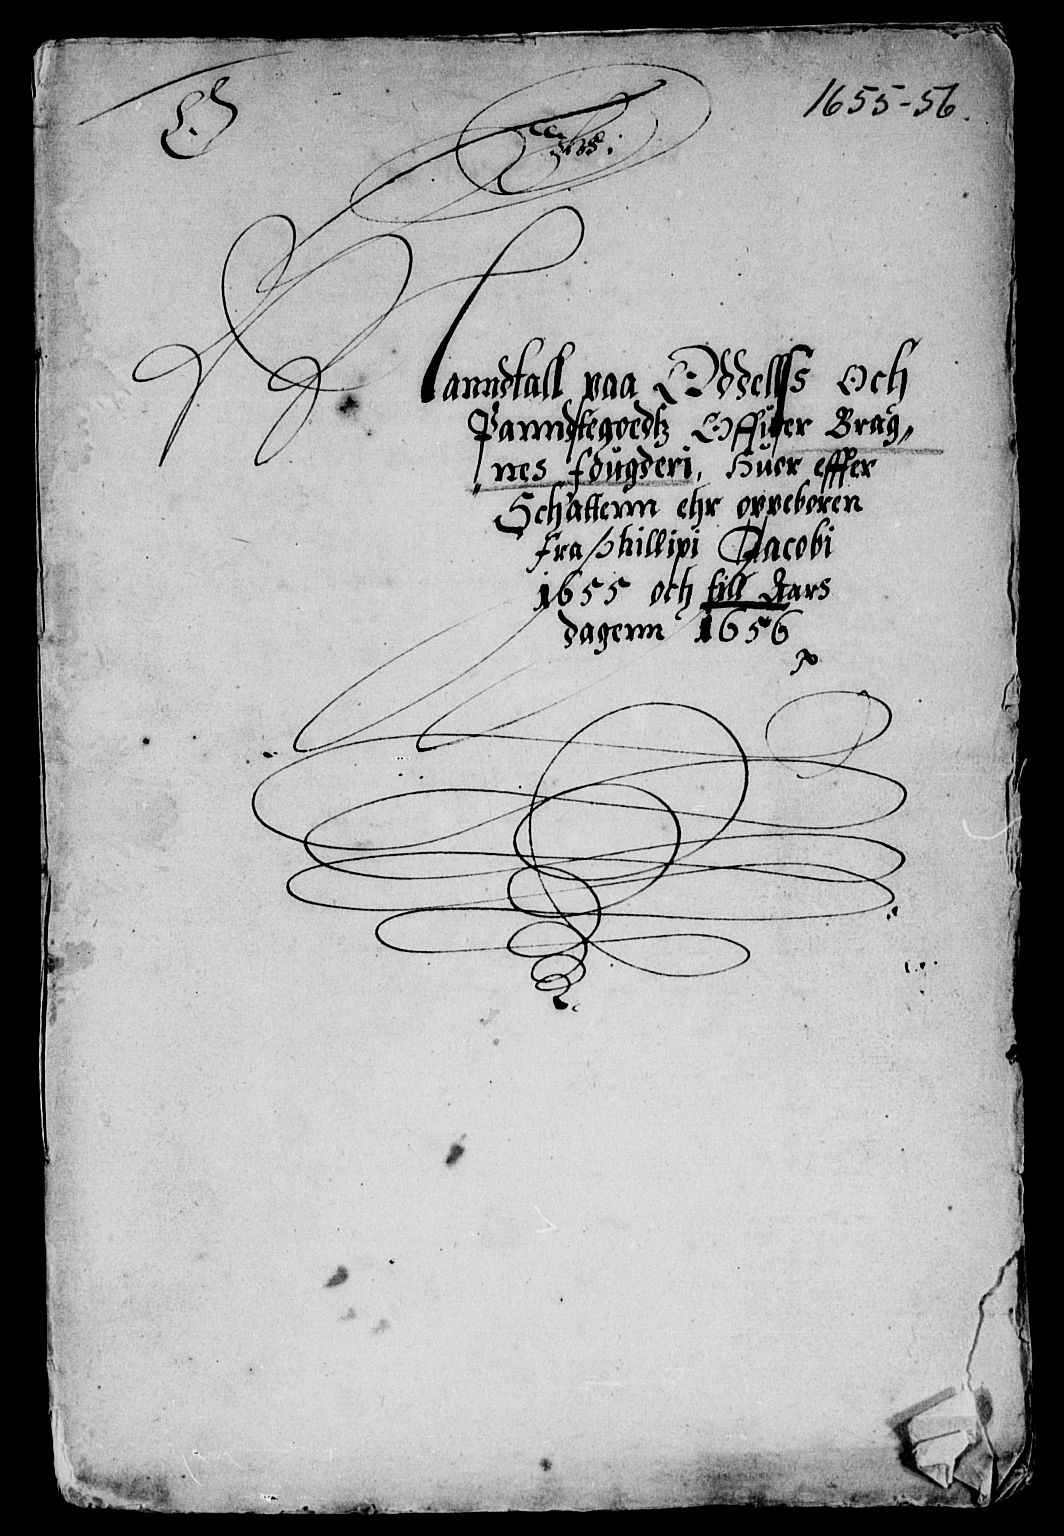 1655-56.
Manndtall paa Oddellss Och
Panndtegoedtz Offuer Brag„
„nes fougderi, Huor effter
Schatterm ehr oppeboren
fra Phillipi Jacobi
1655 och till Aars
dagenn 1656